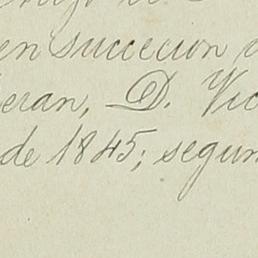 en succecion
eran, D. Vic
de 1845; segun